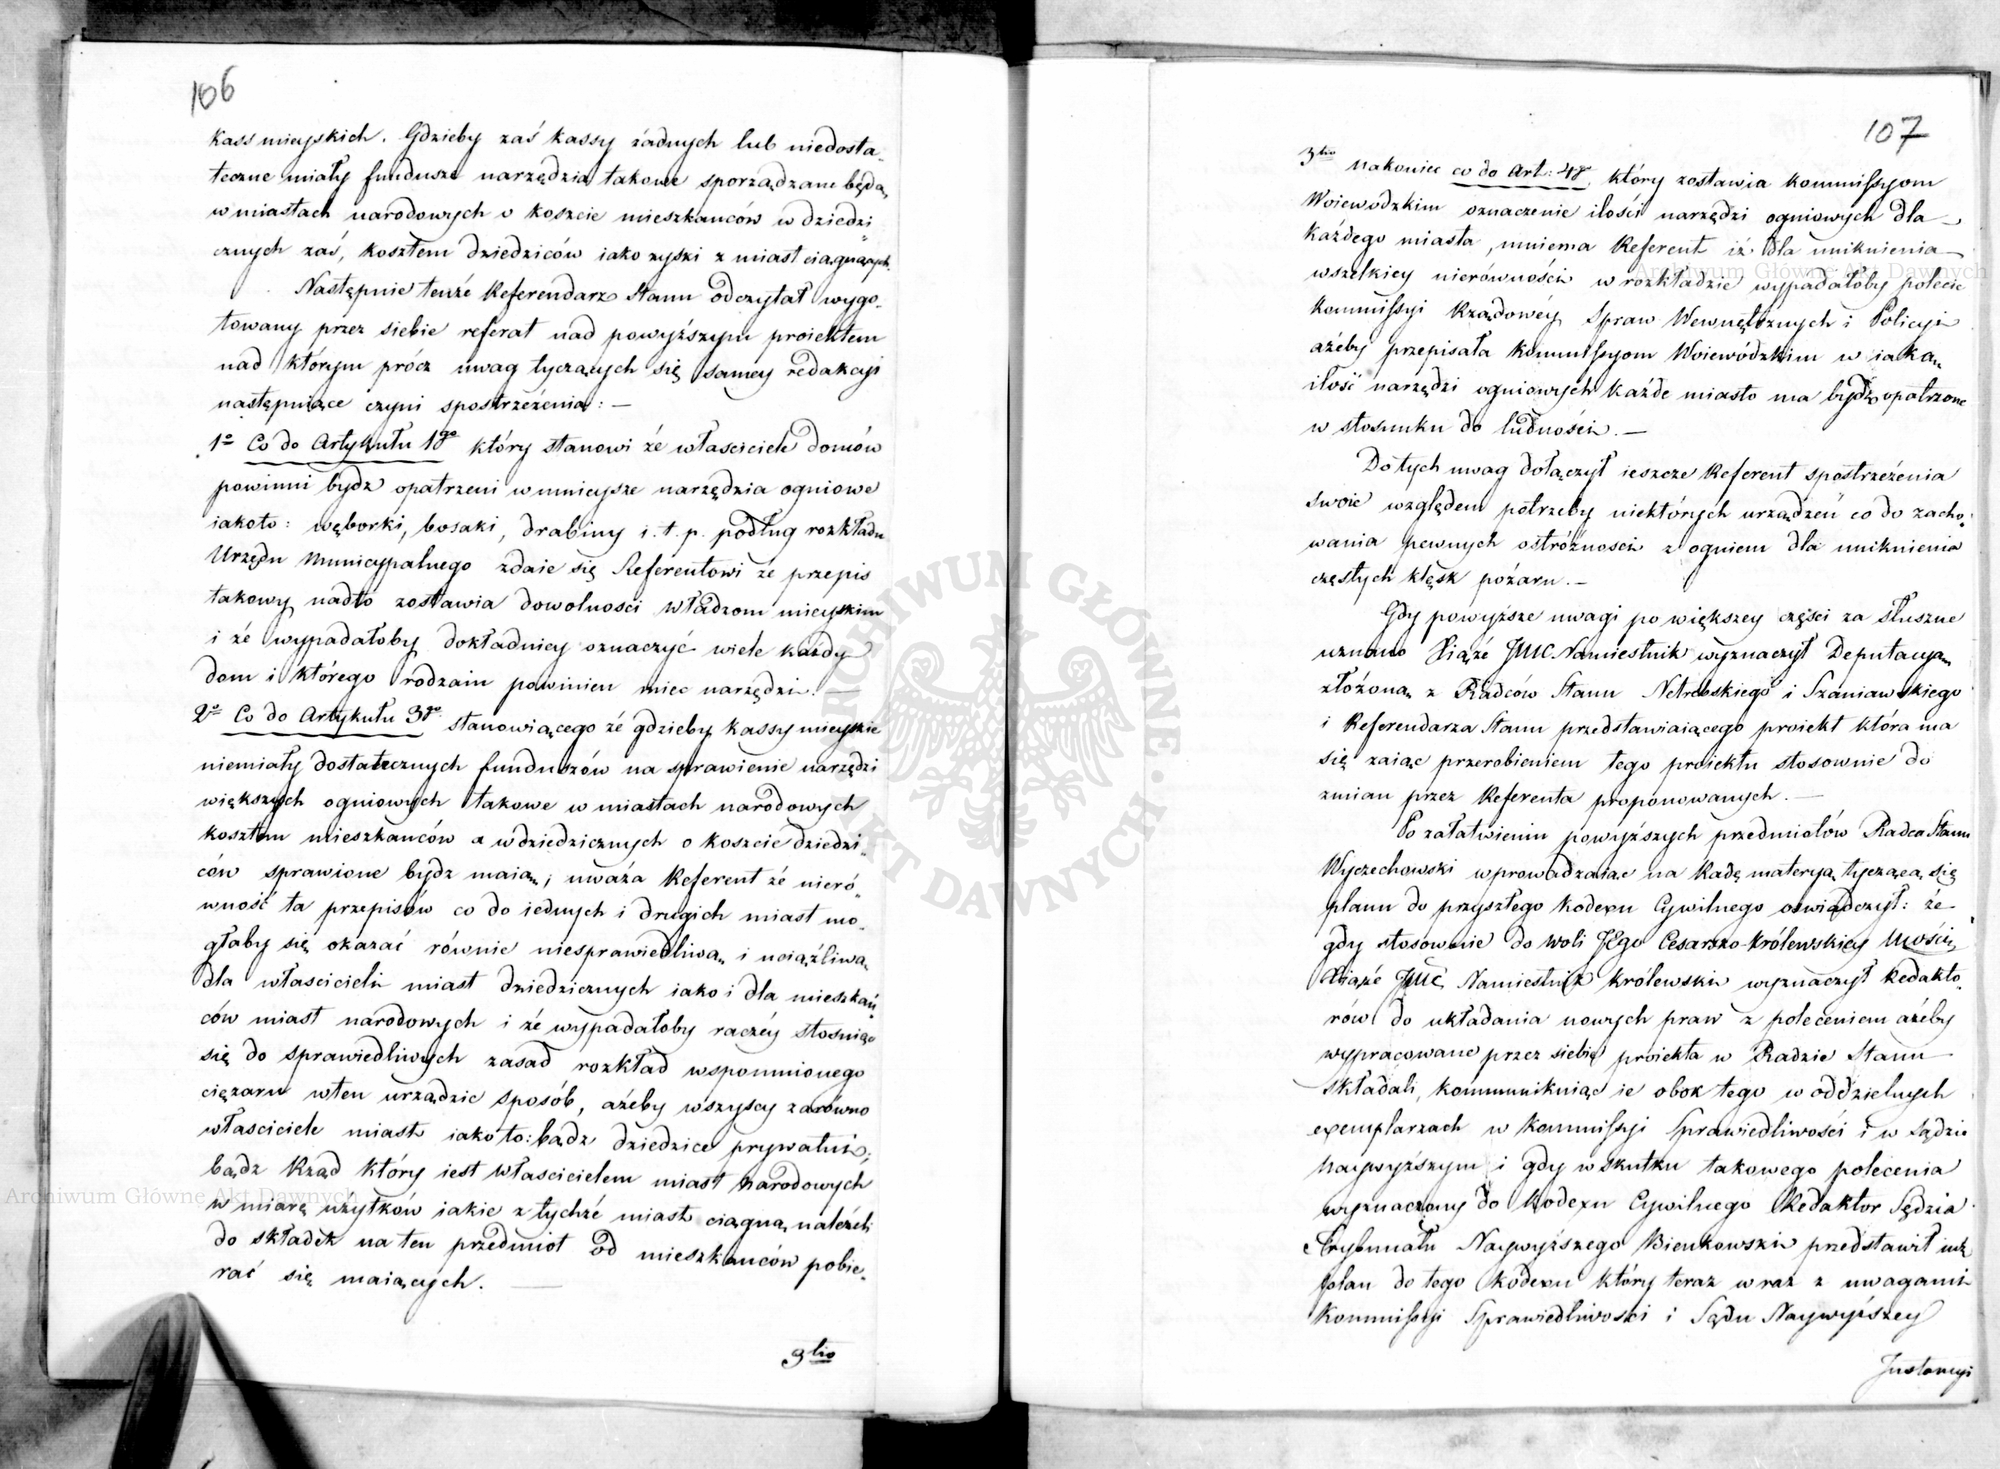 106
kass mieyskich. Gdzieby zaś kassy żadnych lub niedosta-
teczne miały fundusze narzędzia takowe sporządzane będą
w miastach narodowych o koszcie mieszkańców w dziedzi-
cznych zaś, kosztem dziedziców iako zyski z miast ciągnących.
Następnie tenże Referendarz Stanu odczytał wygo-
towany przez siebie referat nad powyższym proiektem
nad którym prócz uwag tyczących się samey redakcyi
następuiące czyni spostrzeżenia: —
1º Co do Artykułu 1go który stanowi że właściciele domów
powinni bydz opatrzeni w mnieysze narzędzia ogniowe
iakoto: węborki, bosaki, drabiny i. t. p. podług rozkładu
Urzędu Municypalnego zdaie się Referentowi że przepis
takowy nadto zostawia dowolności władzom mieyskim
i że wypadałoby dokładniey oznaczyć wiele każdy
dom i którego rodzaiu powinien mieć narzędzi. —
2º Co do Artykułu 3go stanowiącego że gdzieby kassy mieyskie
niemiały dostatecznych funduszów na sprawienie narzędzi
większych ogniowych takowe w miastach narodowych
kosztem mieszkańców a w dziedzicznych o koszcie dziedzi-
ców sprawione bydz maią; uważa Referent że nieró-
wność ta przepisów co do iednych i drugich miast mo-
głaby się okazać równie niesprawiedliwą i uciążliwą
dla właścicieli miast dziedzicznych iako i dla mieszkań-
ców miast narodowych i że wypadałoby raczéy stosuiąc
się do sprawiedliwych zasad rozkład wspomnionego
ciężaru w ten urządzić sposób, ażeby wszyscy zarówno
właściciele miast iako to: bądz dziedzice prywatni,
bądz Rząd który iest właścicielem miast narodowych
w miarę użytków iakie z tychże miast ciągną należeli
do składek na ten przedmiot od mieszkańców pobie-
rać się maiących. —
3tio
107
3tio Nakoniec co do Art: 4go, który zostawia Kommissyom
Woiewódzkim oznaczenie ilości narzędzi ogniowych dla
każdego miasta, mniema Referent iż dla uniknienia
wszelkiey nierówności w rozkładzie wypadałoby polecić
Kommissyi Rządowéy Spraw Wewnętrznych i Policyi
ażeby przepisała Kommissyom Woiewódzkim w iaką
ilość narzędzi ogniowych każde miasto ma bydz opatrzone
w stosunku do ludności. —
Do tych uwag dołączył ieszcze Referent spostrzeżenia
swoie względem potrzeby niektórych urządzeń co do zacho-
wania pewnych ostróżności z ogniem dla uniknienia
częstych klęsk pożaru. —
Gdy powyższe uwagi po większey części za słuszne
uznano Xiąże JMC. Namiestnik wyznaczył Deputacyą
złożoną z Radców Stanu Netrebskiego i Szaniawskiego
i Referendarza Stanu przedstawiaiącego proiekt która ma
się zaiąć przerobieniem tego proiektu stosownie do
zmian przez Referenta proponowanych. —
Po załatwieniu powyższych przedmiotów Radca Stanu
Wyczechowski wprowadzaiąc na Radę materyą tyczącą się
planu do przyszłego Kodexu Cywilnego oświadczył: że
gdy stosownie do woli JEgo Cesarsko-Królewskiey Mości
Xiąże JMC Namiestnik Królewski wyznaczył Redakto-
rów do układania nowych praw z poleceniem ażeby
wypracowane przez siebie proiekta w Radzie Stanu
składali, kommunikuiąc ie obok tego w oddzielnych
exemplarzach w Kommissyi Sprawiedliwości i w Sądzie
Naywyższym i gdy w skutku takowego polecenia
wyznaczony do Kodexu Cywilnego Redaktor Sędzia
Trybunału Naywyższego Bienkowski przedstawił iuż
plan do tego Kodexu który teraz wraz z uwagami
Kommissyi Sprawiedliwości i Sądu Naywyższey
Instancyi
ARCHIWUM GŁÓWNE AKT DAWNYCH
Archiwum Główne Akt Dawnych
Archiwum Główne Akt Dawnych